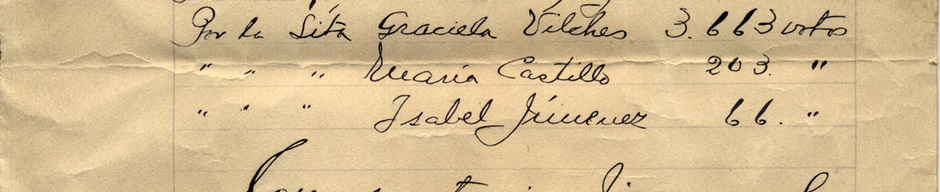 Por la Sita Graciela Vilches 3.663 votos
" " " Maria Castillo 203. "
" " " Isabel Jimenez 66. "